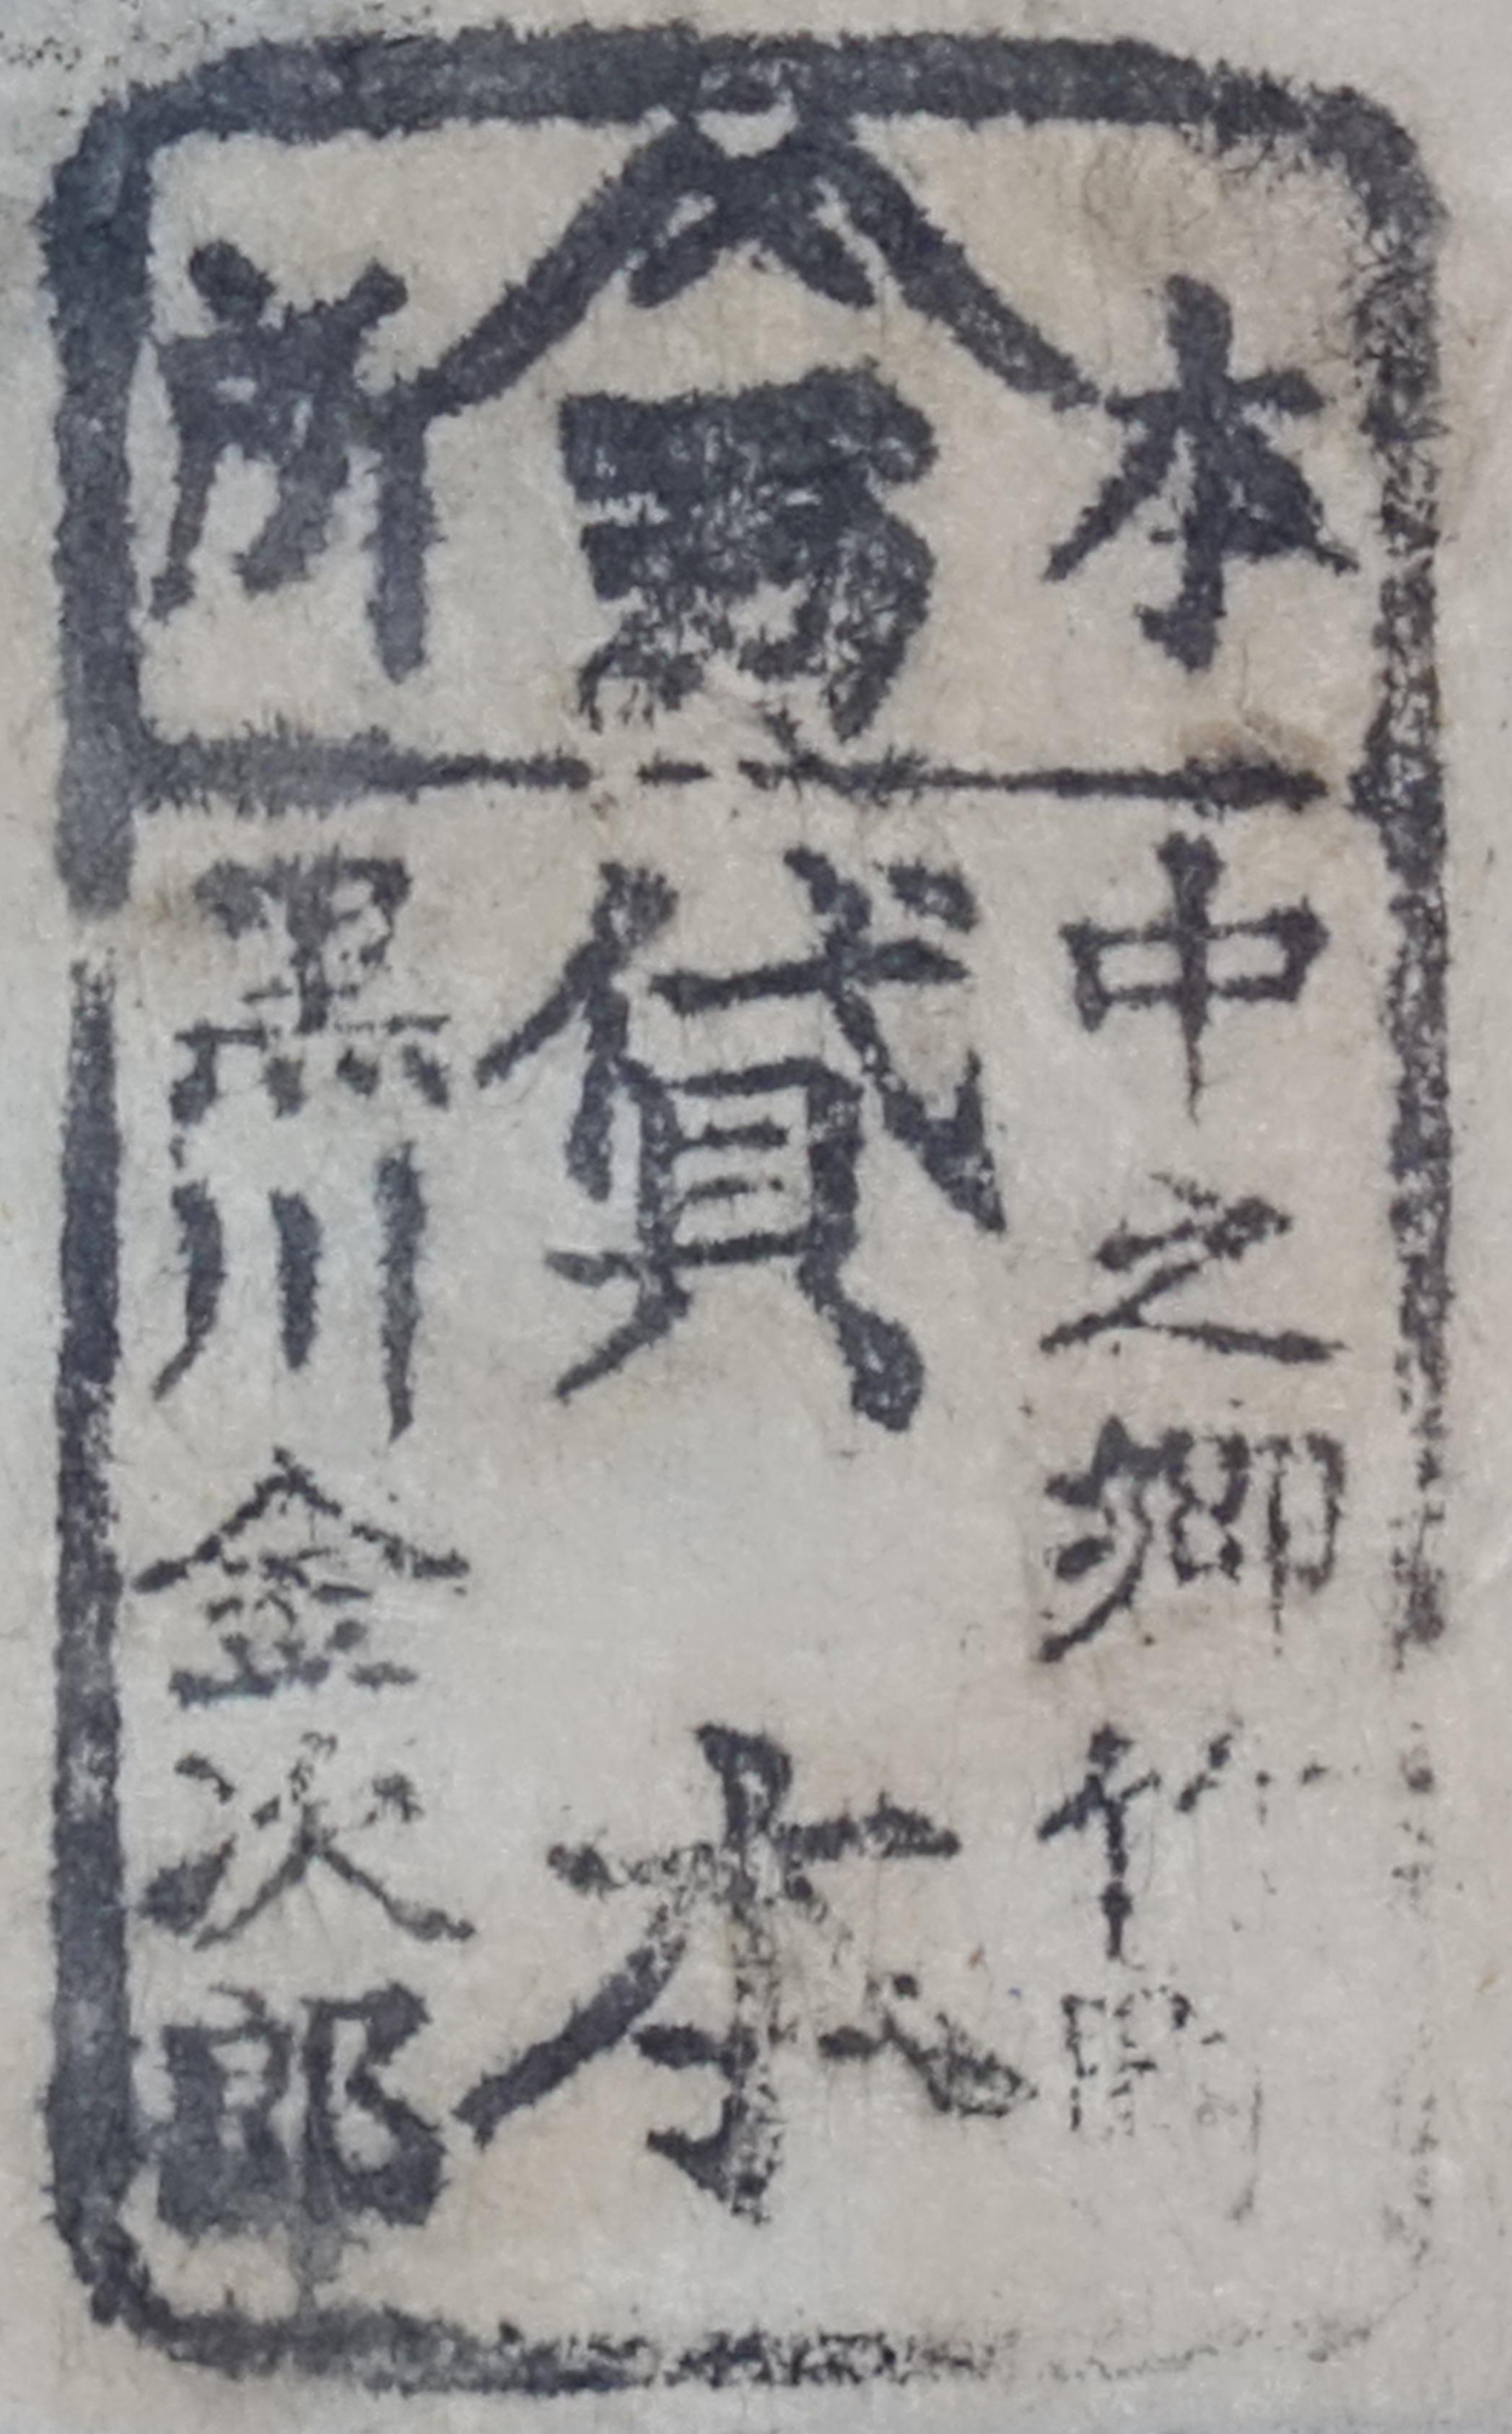 本所
中之郷竹町
貸本
黒川金次郎